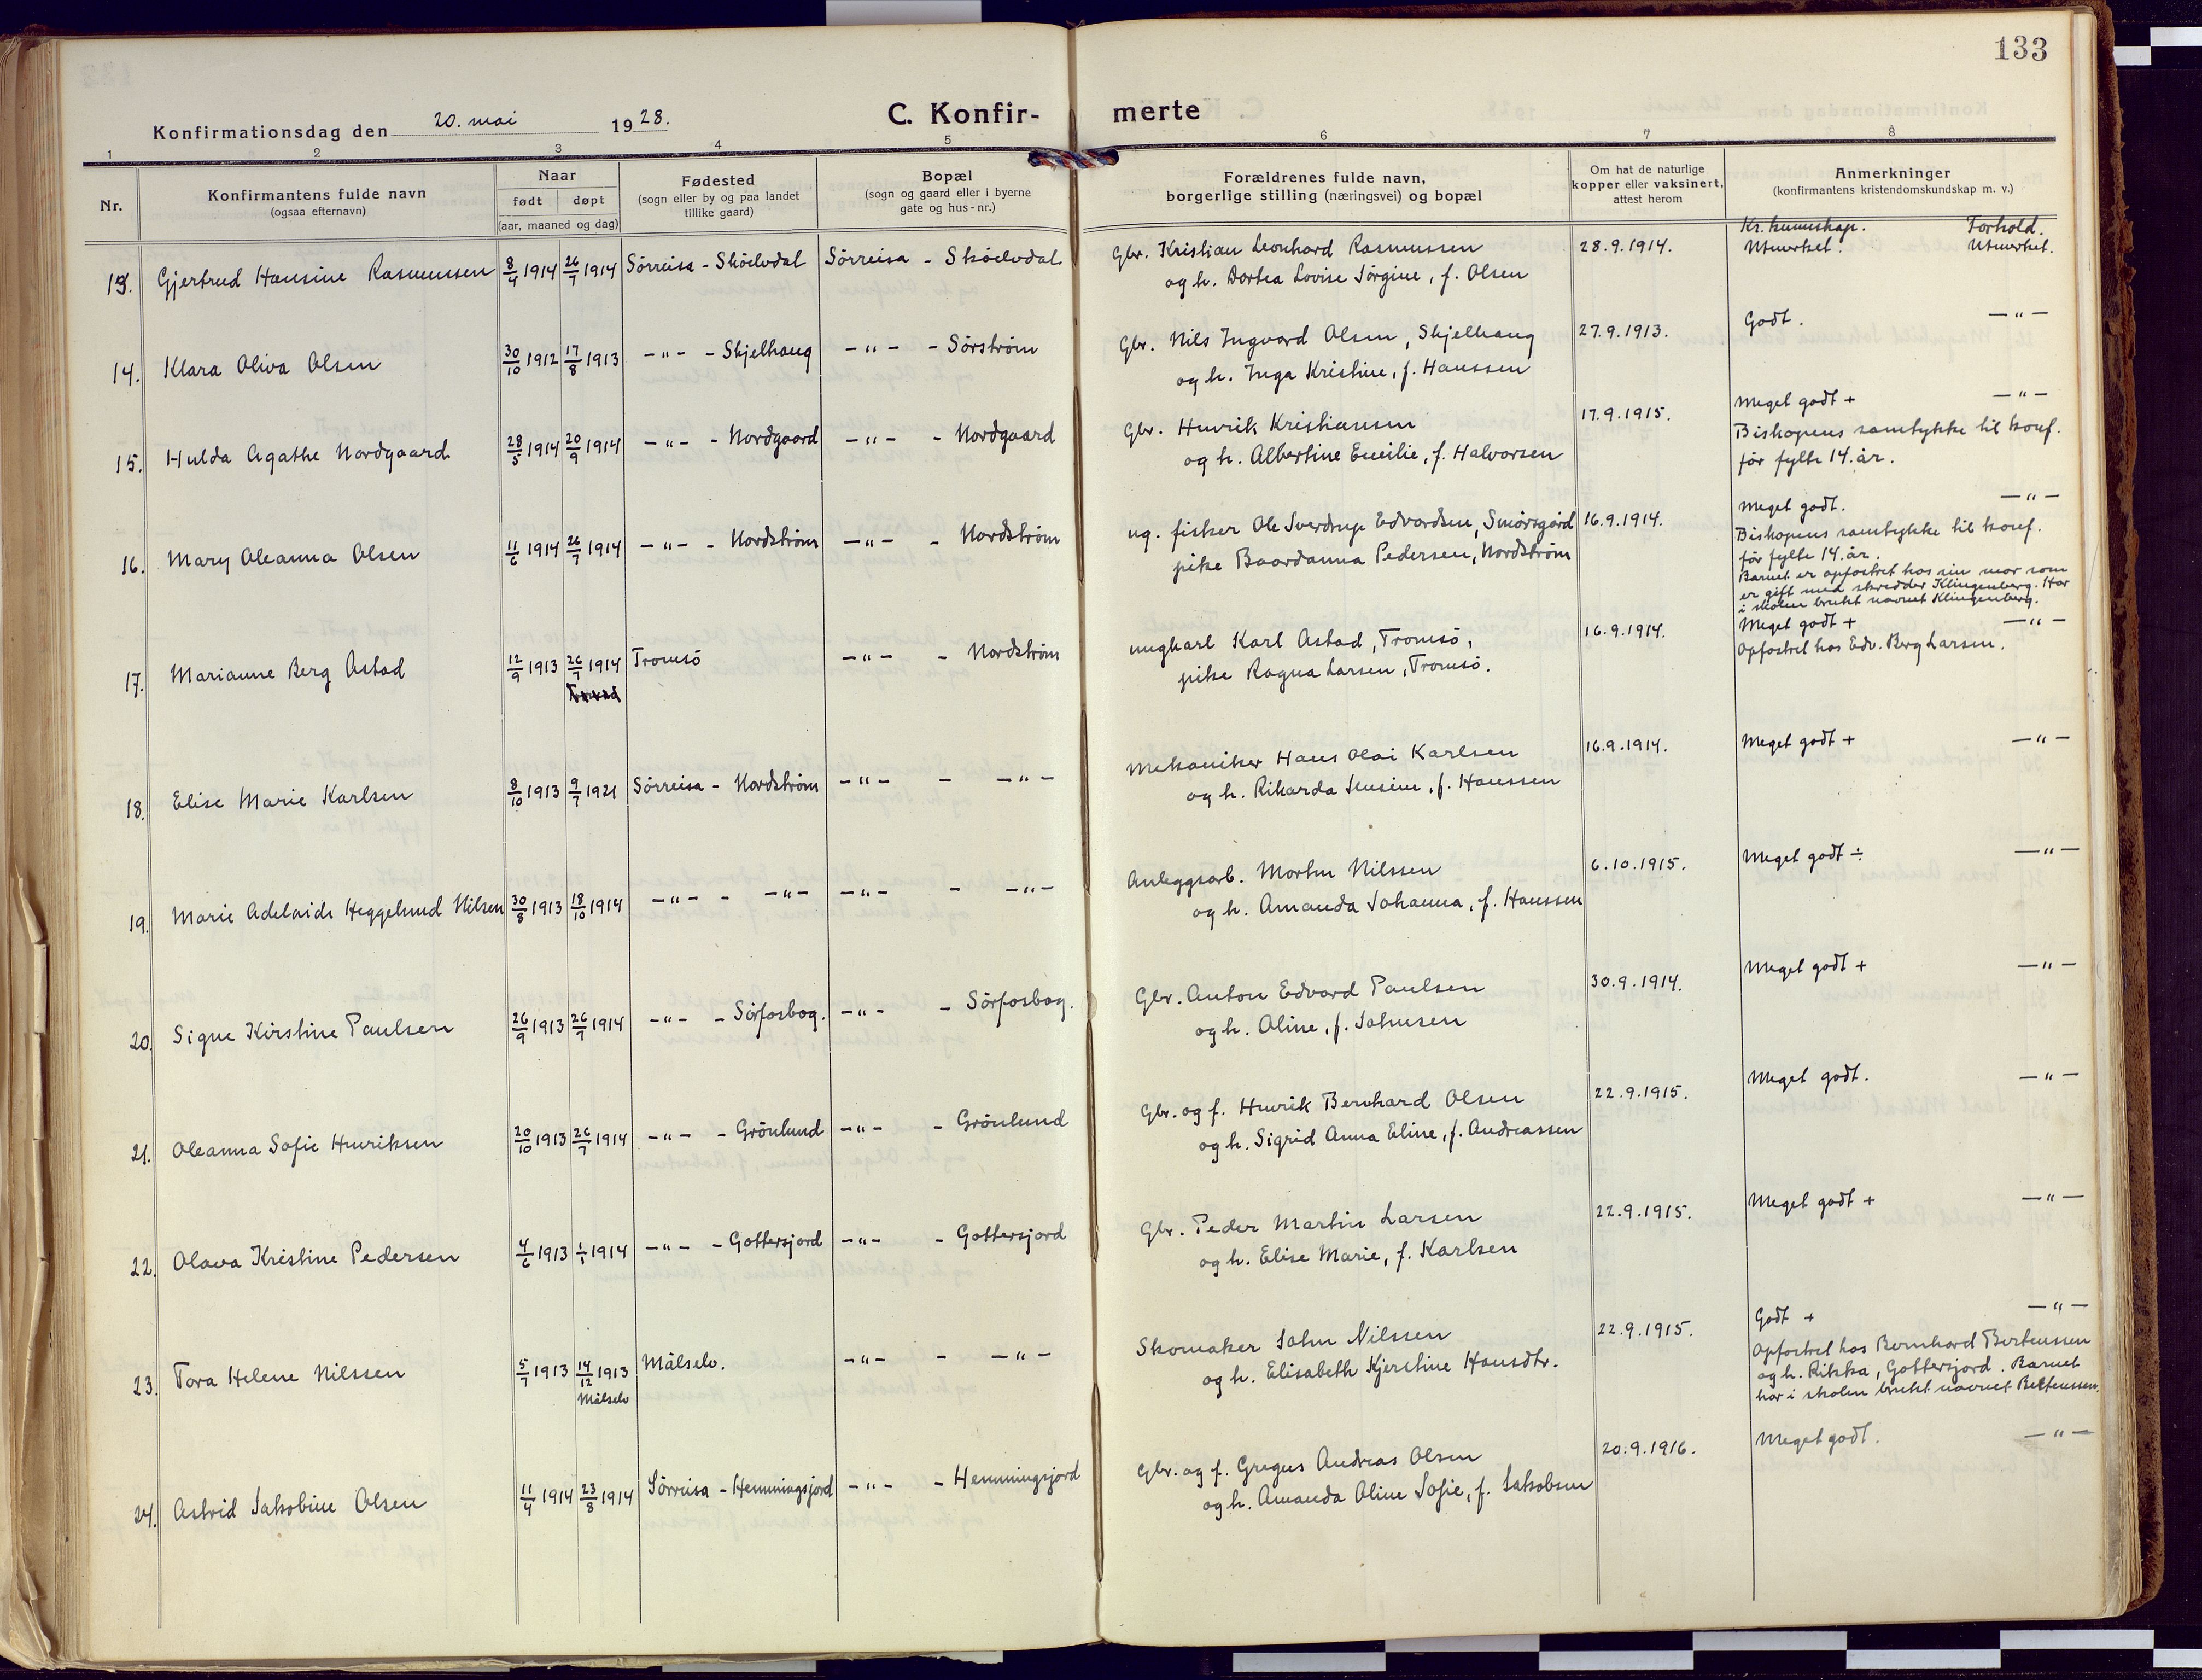 133
Konfirmationsdag den 20. mai 1928.
C. Konfir- merte
1 2 3 4 5 6 7 8
Nr.
Konfirmantens fulde navn
(ogsaa efternavn)
Naar
født døpt
(aar, maaned og dag)
Fødested
(sogn eller by og paa landet
tillike gaard)
Bopæl
(sogn og gaard eller i byerne
gate og hus-nr.)
Forældrenes fulde navn,
borgerlige stilling (næringsvei) og bopæl
Om hat de naturlige
kopper eller vaksinert,
attest herom
Anmerkninger
(konfirmantens kristendomskundskap m. v.)
Kr. kunnskap. Forhold.
13. Gjertrud Hansine Rasmussen 8/4 1914 26/7 1914 Sörreisa - Sköelvdal Sörreisa - Sköelvdal Gbr. Kristian Leonhard Rasmussen 28.9.1914. Utmerket. Utmerket.
og h. Dortea Lovise Jörgine, f. Olsen
14. Klara Oliva Olsen 30/10 1912 17/8 1913 -"- - Skjelhaug -"- - Sörström Gbr. Nils Ingvard Olsen, Skjelhaug 27.9.1913. Godt. -"-
og h. Inga Kristine, f. Hanssen
15. Hulda Agathe Nordgaard 28/5 1914 20/9 1914 -"- - Nordgaard -"- - Nordgaard Gbr. Henrik Kristiansen 17.9.1915. Meget godt + -"-
og h. Albertine Emilie, f. Halvorsen
Biskopens samtykke til konf.
för fylte 14. år.
16. Mary Oleanna Olsen 11/6 1914 26/7 1914 -"- - Nordström -"- - Nordström ug. fisker Ole Sverdrup Edvardsen, Smörsgård 16.9.1914. Meget godt. -"-
pike Baordanna Pedersen, Nordström
Biskopens samtykke til konf.
för fylte 14. år.
Barnet er opfostret hos sin mor som
er gift med skredder Klingenberg. Har
i skolen brukt navnet Klingenberg.
17. Marianne Berg Astad 12/9 1913 26/7 1914 Tromsö -"- - Nordström ungkarl Karl Astad, Tromsö, 16.9.1914. Meget godt + -"-
pike Ragna Larsen, Tromsö.
Opfostret hos Edv. Berg Larsen.
18. Elise Marie Karlsen 8/10 1913 9/7 1921 Sörreisa - Nordström -"- - -"- Mekaniker Hans Olai Karlsen 16.9.1914. Meget godt + -"-
og h. Rikarda Jensine, f. Hanssen
19. Marie Adelaide Heggelund Nilsen 30/8 1913 18/10 1914 -"- - -"- -"- - -"- Anleggsarb. Morten Nilssen 6.10.1915. Meget godt ÷ -"-
og h. Amanda Johanna, f. Hanssen
20. Signe Kirstine Paulsen 26/9 1913 26/7 1914 -"- - Sörfosbog. -"- - Sörfosbog. Gbr. Anton Edvard Paulsen 30.9.1914. Meget godt + -"-
og h. Aline, f. Johnsen
21. Oleanna Sofie Henriksen 20/10 1913 26/7 1914 -"- - Grönlund -"- - Grönlund Gbr. og f. Henrik Bernhard Olsen 22.9.1915. Meget godt. -"-
og h. Sigrid Anna Eline, f. Andreassen
22. Olava Kristine Pedersen 4/6 1913 1/1 1914 -"- - Gottersjord -"- - Gottersjord Gbr. Peder Martin Larsen 22.9.1915. Meget godt + -"-
og h. Elise Marie, f. Karlsen
23. Tora Helene Nilssen 5/7 1913 14/12 1913 Målselv. -"- - -"- Skomaker John Nilssen 22.9.1915. Godt + -"-
Målselv
og h. Elisabeth Kjerstine Hansdtr.
Opfostret hos Bernhard Berteussen
og h. Rikka, Gottersjord. Barnet
har i skolen brukt navnet Berteussen.
24. Astrid Jakobine Olsen 11/4 1914 23/8 1914 Sörreisa - Hemmingsjord -"- - Hemmingsjord Gbr. og f. Gregus Andreas Olsen 20.9.1916. Meget godt. -"-
og h. Amanda Oline Sofie, f. Jakobsen